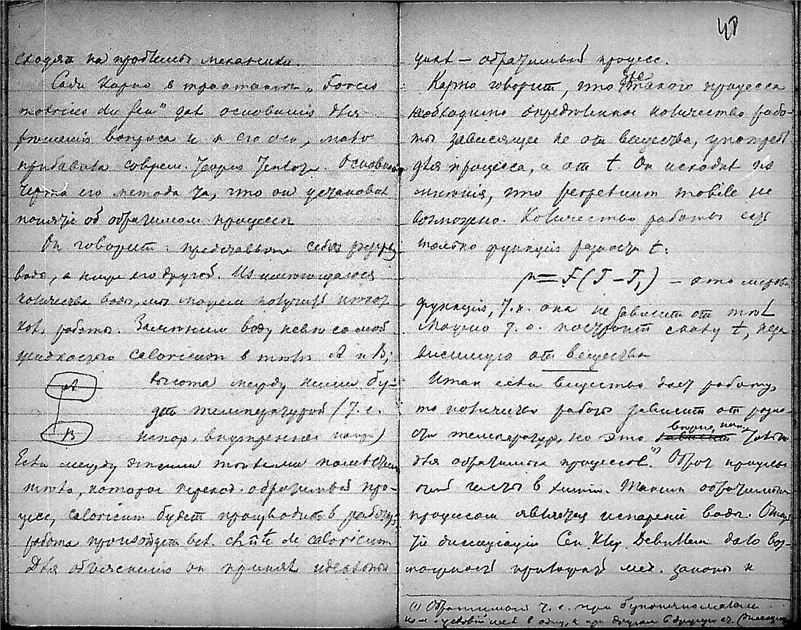 сходят на проблемы механики.
Сади Карно в трактате „Forces
motrices du feu" дал основания для
решения вопроса и к его соч. мало
прибавила соврем. теория
черта его метода та, что он установил
понятие об обратимом процессе
Он говорит: представьте себе
воды, а ниже его другой. Из имеющегося
количества воды, мы можем получить
кол. работы. Заменим воду
жидкостью caloricum в телах A и B;
A
высота между ними бу-
дет температурой (т.е.
B
напор, внутренний
Если между этими телами поместим
тело, которое переход. обратимый про-
цесс, caloricum будет производить работу,
работа произойдет chûte de caloricum
Для объяснения он принял идеальный
48
цикл — обратимый процесс.
Карно говорит, что для такого процесса
необходимо определенное количество рабо-
ты зависящее не от вещества, употреб
для процесса, а от t. Он исходит из
мнения, что perpetuum mobile не
возможно. Количество работы есть
только функция разности t:
p = F(T – T₁) —
функция, т.к. она не зависит от тел
Можно т.о. построить скалу t, неза
висимую от вещества
Итак если вещество дает работу,
то количество работы зависит от разно-
сти температур, но это
для обратимых процессов¹⁾. Обрат процессы
очень часты в химии. Таким обратимым
процессом является испарение воды.
диссоциации Сен. Клер Девиллем дало воз-
можность прилагать мех. законы к
(1) Обратимого т.е. при бесконечномалом